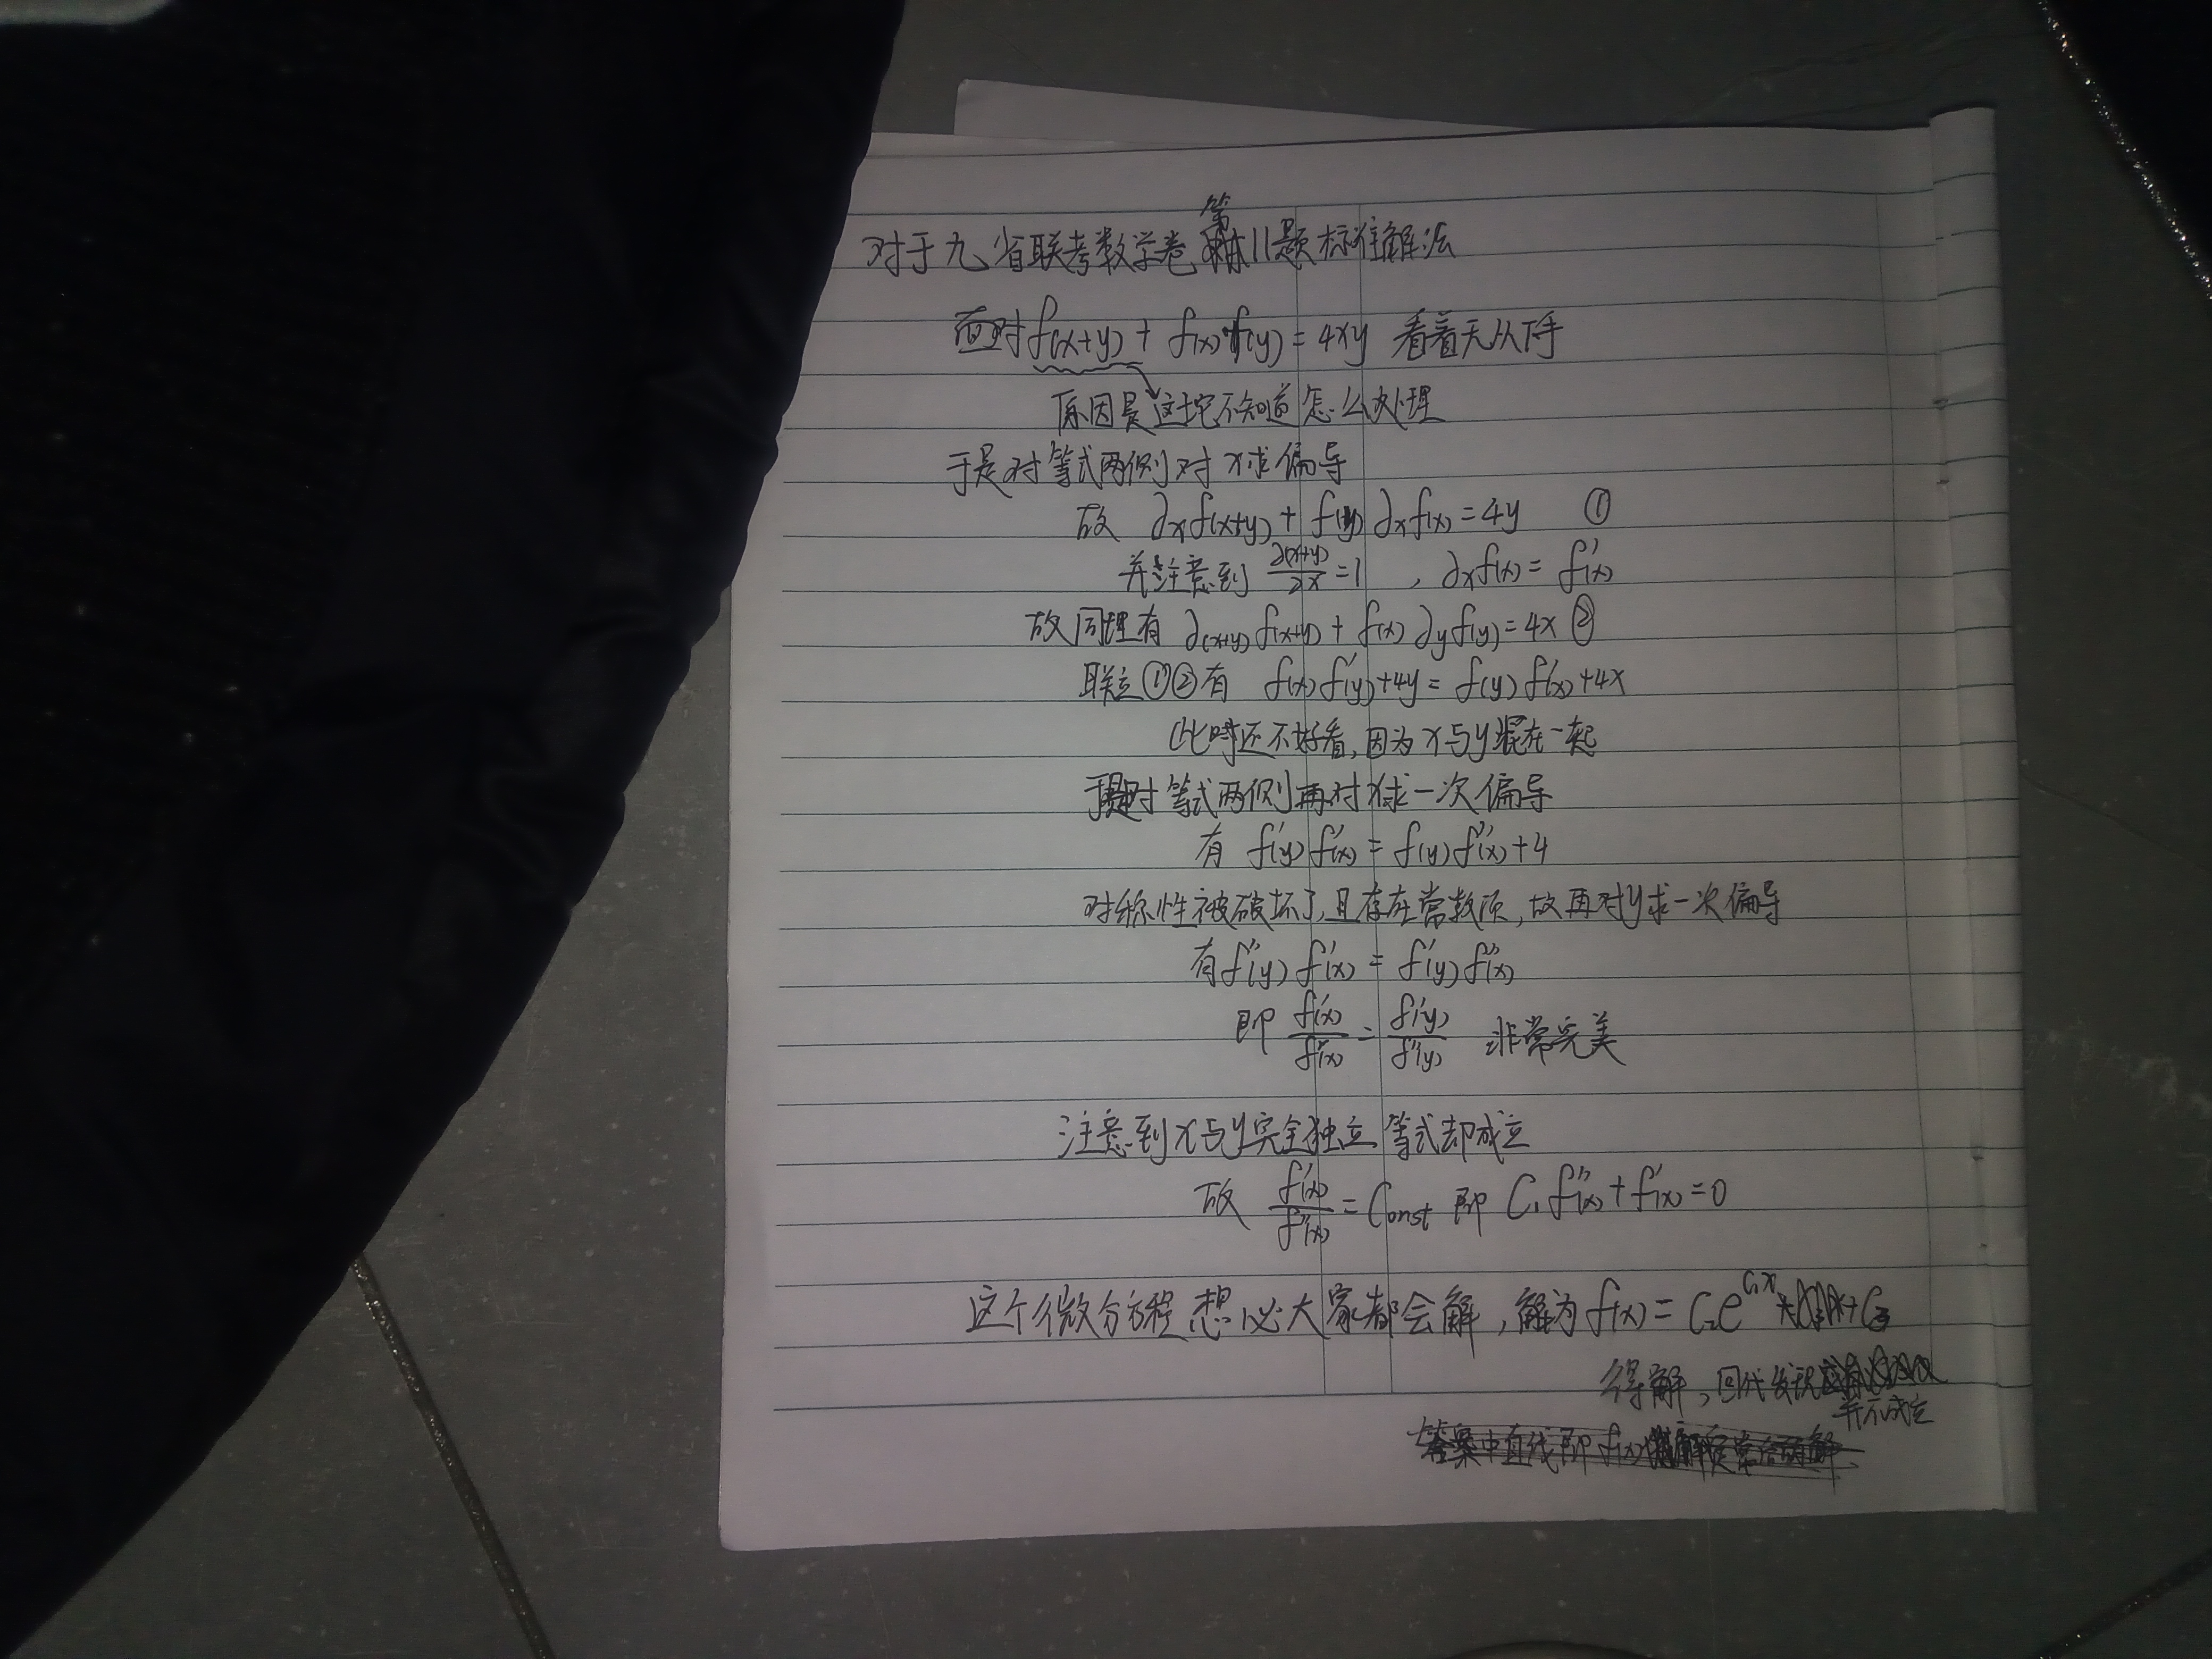 对于九省联考数学卷第11题标准解法
面对f(x+y) + f(x)f(y) = 4xy 看着无从下手
原因是这坨不知道怎么处理
于是对等式两侧对x求偏导
故 ∂xf(x+y) + f(y)∂xf(x) = 4y ①
并注意到 ∂(x+y)/∂x = 1 , ∂xf(x) = f'(x)
故同理有 ∂(x+y)f(x+y) + f(x)∂yf(y) = 4x ②
联立①②有 f(x)f'(y)+4y = f(y)f'(x)+4x
此时还不好看,因为x与y混在一起
于是对等式两侧再对x求一次偏导
有 f'(y)f'(x) = f(y)f''(x)+4
对称性被破坏了,且存在常数项,故再对y求一次偏导
有f''(y)f'(x) = f'(y)f''(x)
即 f'(x)/f''(x) = f'(y)/f''(y) 非常完美
注意到x与y完全独立 等式却成立
故 f'(x)/f''(x) = Const 即 C₁f''(x)+f'(x)=0
这个微分方程想必大家都会解,解为f(x) = C₂e^{C₁x} + C₃
得解,回代发现并不成立